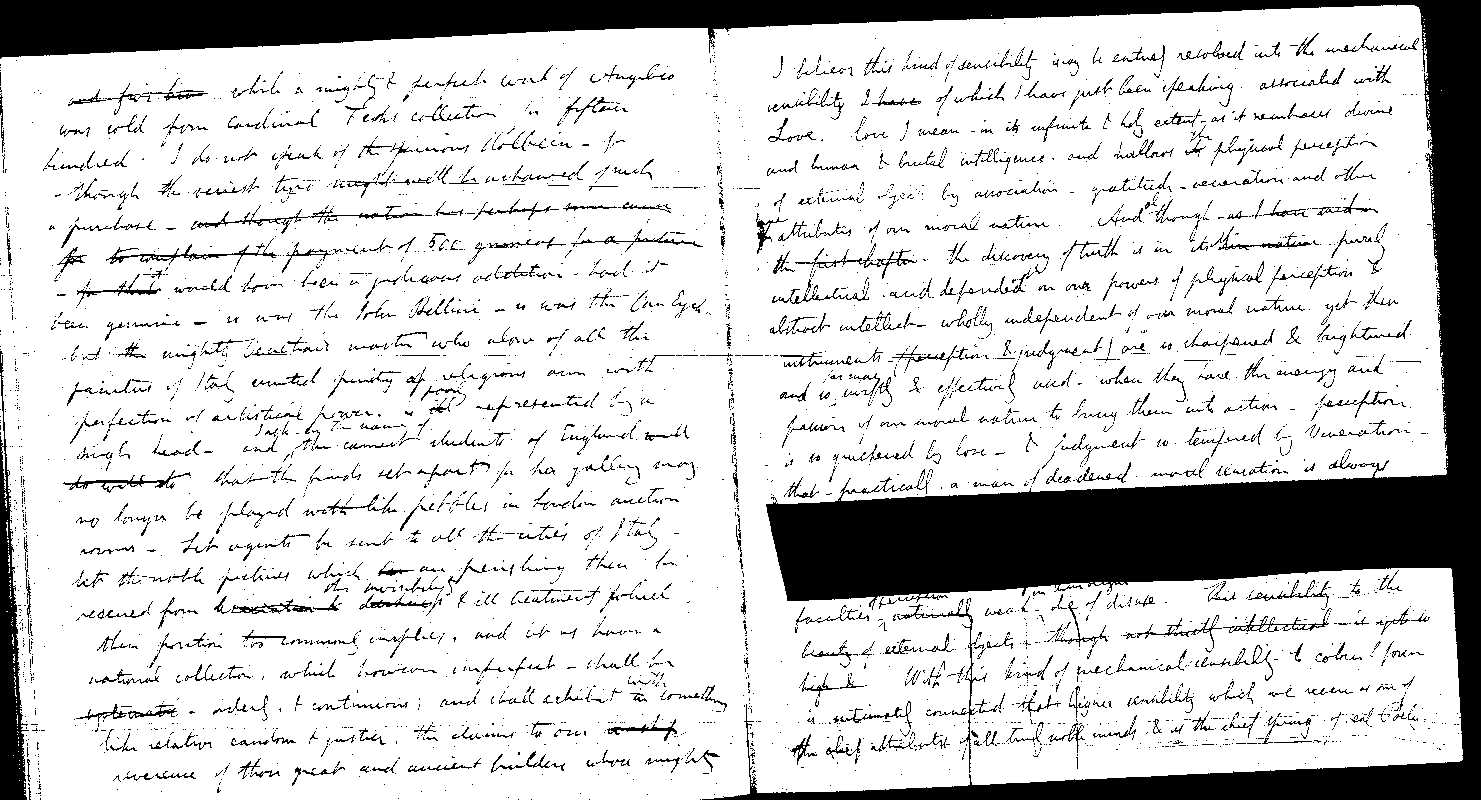 and fair been while a mighty & perfect work of Angelico
was sold from Cardinal Fesch's collection for fifteen
hundred. I do not speak of the spurious Holbein - for
- though the veriest tyro might well be ashamed of such
a purchase - and though the nation has perhaps some cause
for to complain of the payment of 500 guineas for a picture
- for that it would have been a judicious addition - had it
been genuine - so was the John Bellini - so was the Van Eyck.
but the mighty Venetian master who alone of all the
painters of Italy united purity of religious aim with
perfection of artistical power. is poorly represented by a
single head - and I ask - in the name of the earnest students of England
do well to that the funds set apart for her gallery may
no longer be played with like pebbles in London auction
rooms - Let agents be sent to all the cities of Italy -
let the noble pictures which are perishing there be
rescued from the invisibility & ill treatment which
their position too commonly implies. and let us have a
national collection, which however imperfect - shall be
systematic - orderly, & continuous; and shall exhibit with something
like relative candour & justice. the claims to our
reverence of those great and ancient builders whose mighty
I believe this kind of sensibility may be entirely resolved into the mechanical
sensibility I have of which I have just been speaking. associated with
Love. love I mean - in its infinite & holy extent - as it embraces divine
and human & brutal intelligence. and hallows the physical perception
of external objects by association - gratitude - veneration and other
pure attributes of our moral nature. And although - as I have said in
the first chapter. the discovery of truth is in its nature purely
intellectual. and dependent on our powers of physical perception &
abstract intellect - wholly independent of our moral nature yet these
instruments (perception & judgment) are so sharpened & brightened
and so far more swiftly & effectively used - when they have the energy and
passion of our moral nature to bring them into action - perception
is so quickened by love - & judgment so tempered by Veneration -
that - practically. a man of deadened moral sensation is always
faculties of perception naturally weak. or of disuse. This sensibility to the
beauty of external objects - though not strictly intellectual - is yet so
high & With this kind of mechanical sensibility to colour & form
is intimately connected that higher sensibility which we revere as one of
the chief attributes of all truly noble minds & is the chief spring of real Poetry